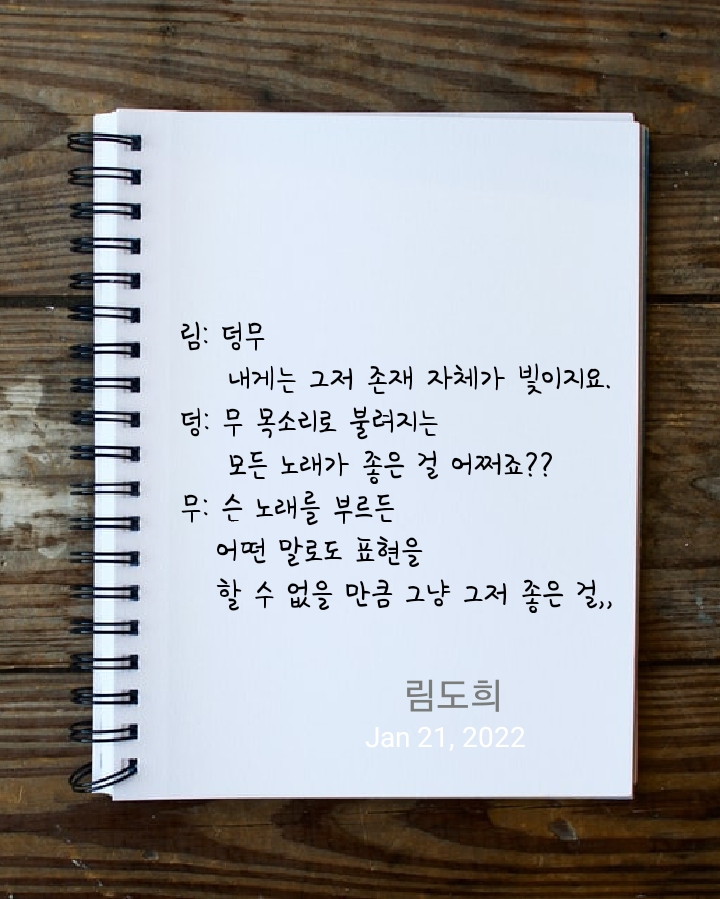 림: 덩무
내게는 그저 존재 자체가 빛이지요.
덩: 무 목소리로 불려지는
모든 노래가 좋은 걸 어쩌죠??
무: 슨 노래를 부르든
어떤 말로도 표현을
할 수 없을 만큼 그냥 그저 좋은 걸,,
림도희
Jan 21, 2022